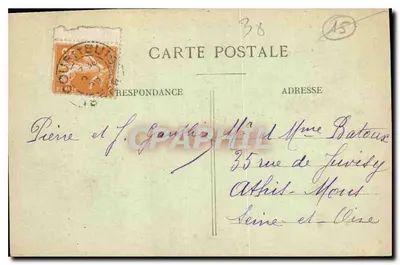 38
15
CARTE POSTALE
RESPONDANCE
ADRESSE
Pierre et J. Gauthier
Mr et Mme Batoux
35 rue de Juvisy
Athis-Mons
Seine-et-Oise
CPAPHIL